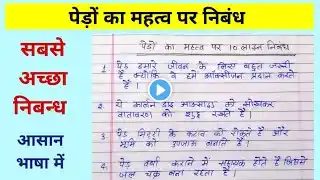 पेड़ों का महत्व पर निबंध
सबसे
अच्छा
निबन्ध
आसान
भाषा में
पेड़ों का महत्व पर 10 लाइन निबंध
1. पेड़ हमारे जीवन के लिए बहुत जरूरी
है क्योंकि वे हमें ऑक्सीजन प्रदान करते
हैं।
2. ये कार्बन डाइ आक्साइड को सोखकर
वातावरण को शुद्ध रखते हैं।
3. पेड़ मिट्टी के कटाव को रोकते हैं और
भूमि को उपजाऊ बनाते हैं।
4. पेड़ वर्षा कराने में सहायक होते हैं जिससे
जल चक्र बना रहता है।